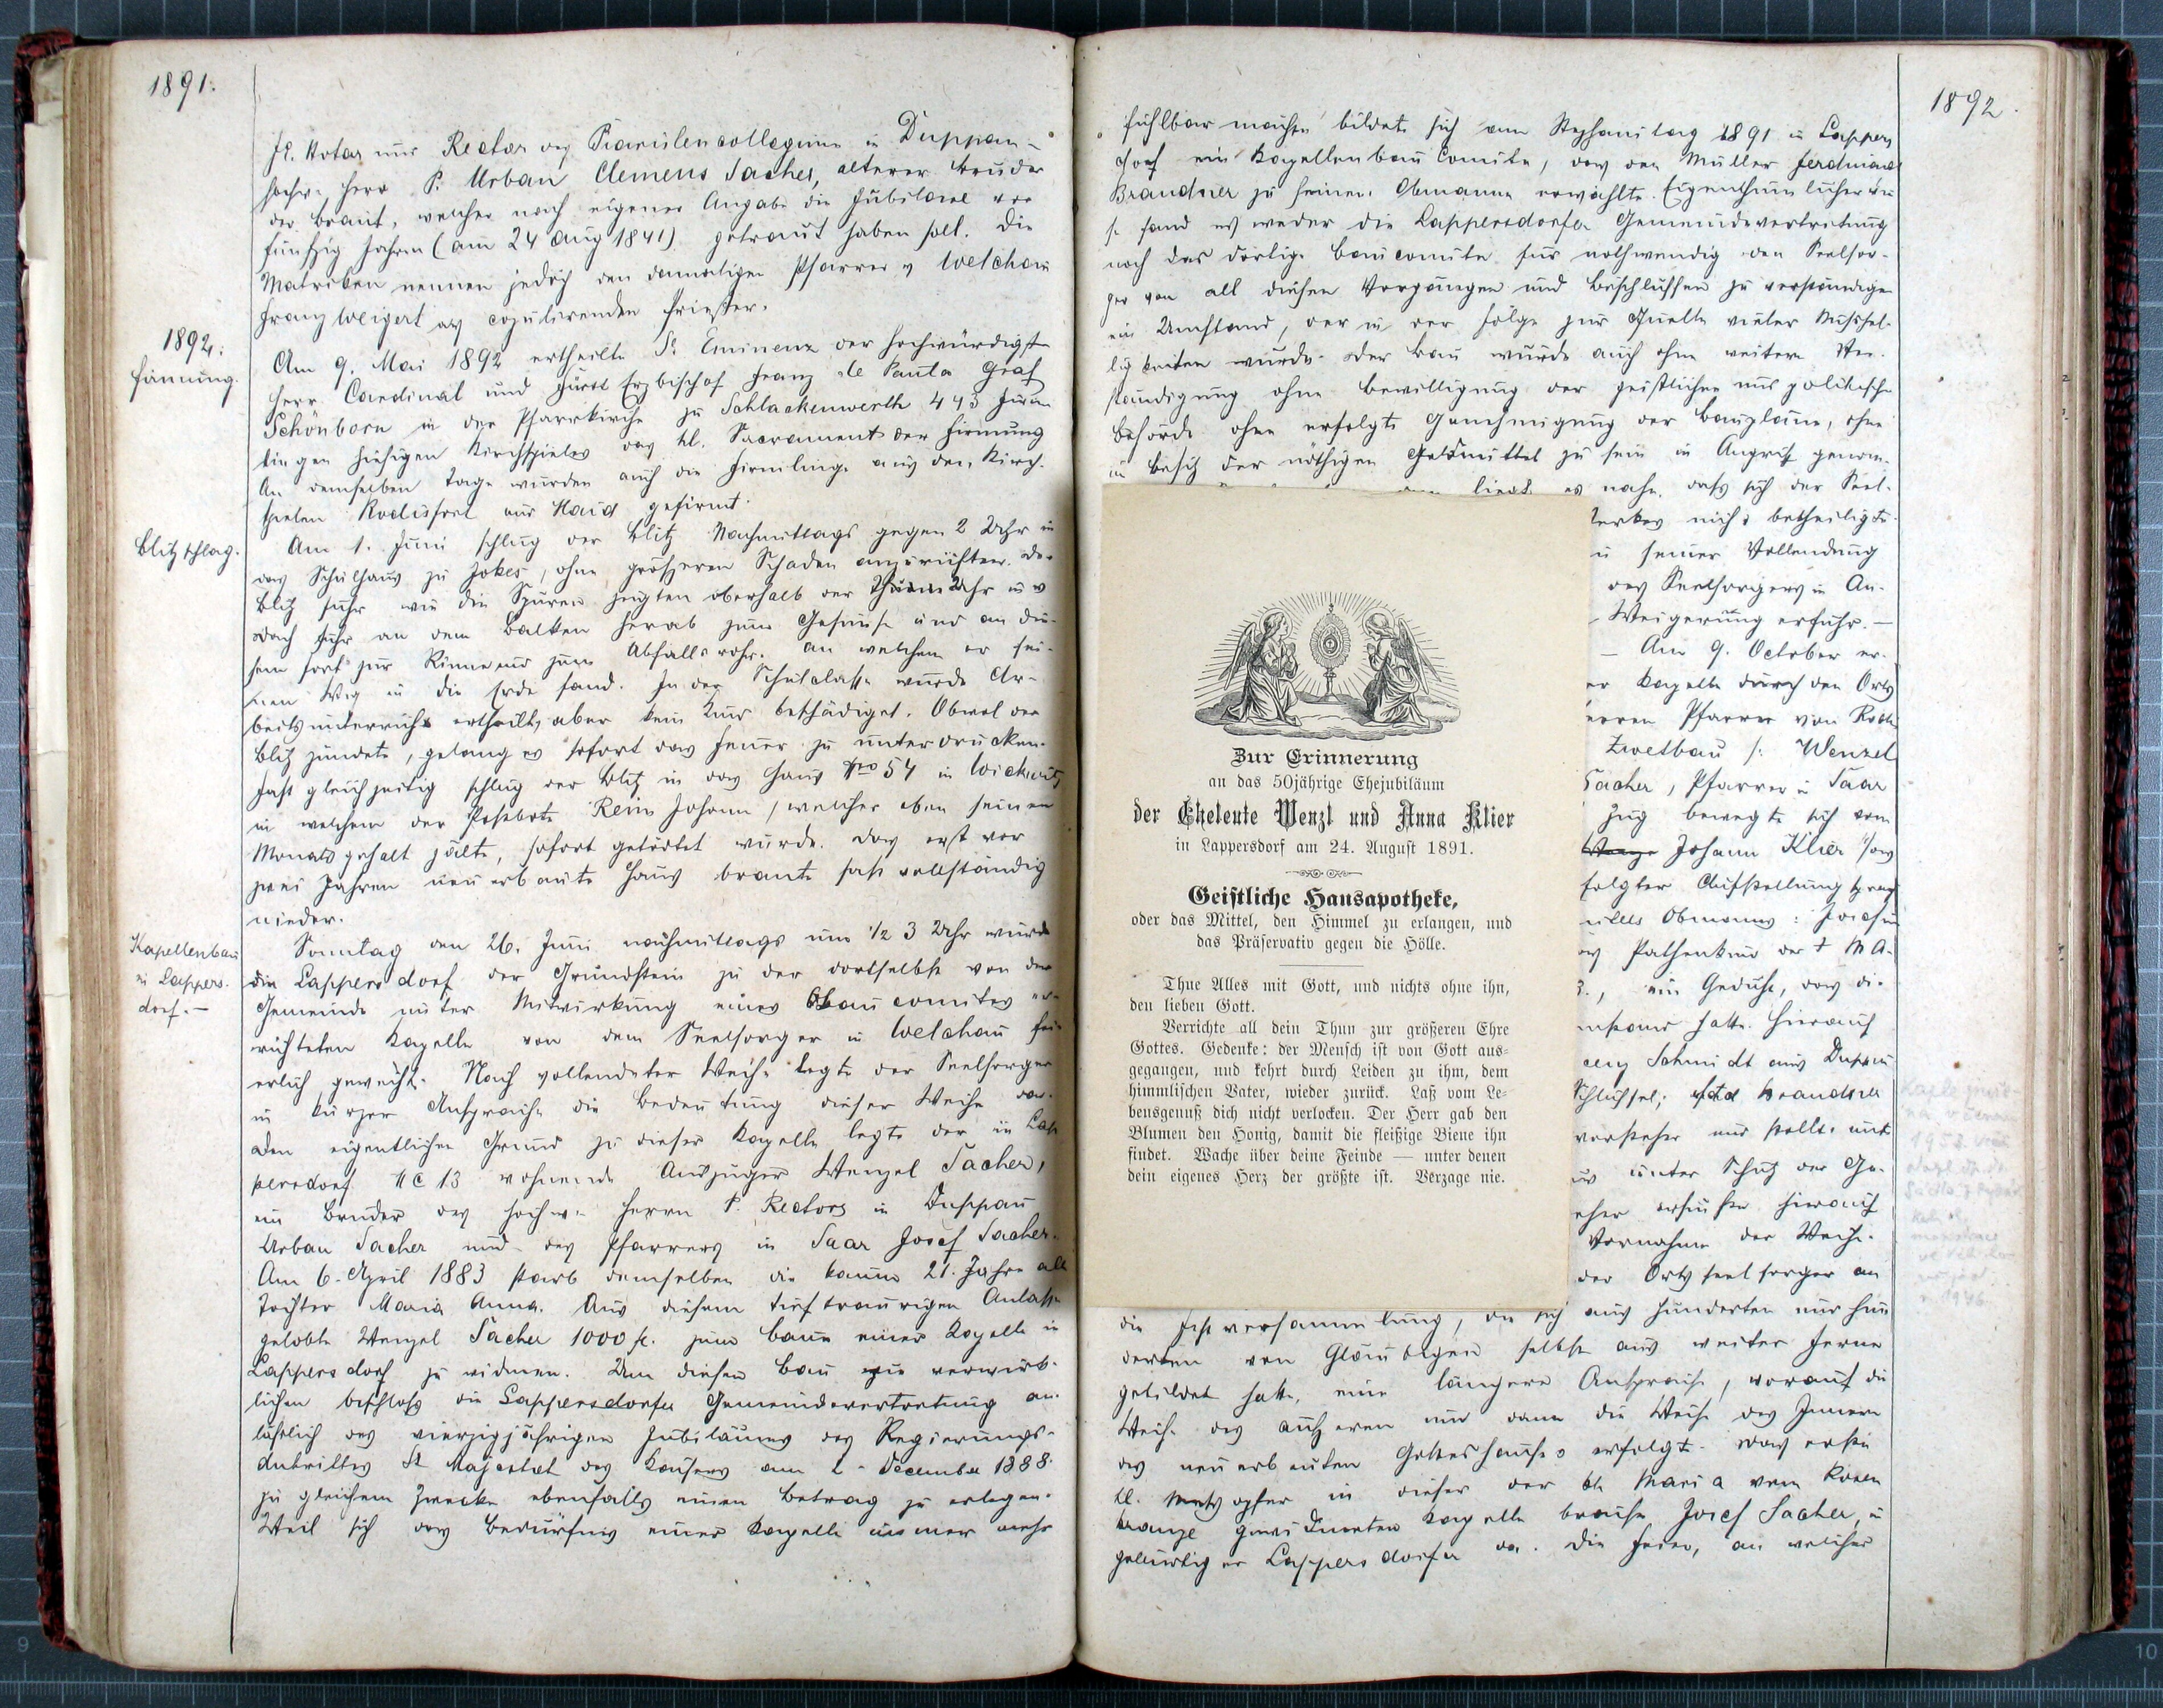 1891.
fr. Notar und Rector des Piaristencollegiums in Duppau
hochw. Herr P. Urban Clemens Sacher, älterer Bruder
der Braut, welcher nach eigener Angabe die Jubilare vor
fünfzig Jahren (am 24 Aug 1841) getraut haben soll. Die
Matriken nennen jedoch den damaligen Pfarrer v Welchau
Franz Weigert als copulirenden Priester.
1892:
Firmung.
Am 9. Mai 1892 ertheilte Se Eminenz der hochwürdigste
Herr Cardinal und Fürst Erzbischof Franz de Paula Graf
Schönborn in der Pfarrkirche zu Schlackenwerth 443 Firm
lingen hiesigen Kirchspieles das hl. Sacrament der Firmung
An demselben Tage wurden auch die Firmlinge aus den Kirch-
spielen Rodisfort und Haid gefirmt.
Blitzschlag.
Am 1. Juni schlug der Blitz Nachmittags gegen 2 Uhr in
das Schulhaus zu Jokes, ohne größeren Schaden anzurichten. Der
Blitz fuhr wie die Spuren zeigten oberhalb der Thurm Uhr in
Dach fuhr an dem Balken herab zum Gesimse und an die-
sem fort zur Rinne und zum Abfallsrohr. an welchem er sei-
nen Weg in die Erde fand. In der Schulclasse wurde Ar-
beitsunterricht ertheilt, aber kein Kind beschädiget. Obwol der
Blitz zündete, gelang es sofort das Feuer zu unterdrücken.
Fast gleichzeitig schlug der Blitz in das Haus Nro 54 in Wickwitz
in welchem der Postbote Rein Johann, welcher eben seinen
Monatsgehalt zälte, sofort getödtet wurde. Das erst vor
zwei Jahren neu erbaute Haus brante fast vollständig
nieder.
Kapellenbau
in Lappers-
dorf. —
Sonntag den 26. Juni nachmittags um 1/2 3 Uhr wurde
in Lappersdorf der Grundstein zu der dortselbst von der
Gemeinde unter Mitwirkung eines Baucomites er-
richteten Kapelle von dem Seelsorger in Welchau fei-
erlich geweiht. Nach vollendeter Weihe legte der Seelsorger
in kurzer Ansprache die Bedeutung dieser Weihe dar.
Den eigentlichen Grund zu dieser Kapelle legte der in Lap
persdorf NC 13 wohnende Auszügler Wenzel Sacher,
ein Bruder des hochw. Herrn P. Rectors in Duppau
Urban Sacher und des Pfarrers in Saar Josef Sacher.
Am 6. April 1883 starb demselben die kaum 21. Jahre alte
Tochter Maria Anna. Aus diesem tieftraurigen Anlasse
gelobte Wenzel Sacher 1000 fl. zum Baue einer Kapelle in
Lappersdorf zu widmen. Um diesen Bau zu verwirk-
lichen beschloß die Lappersdorfer Gemeindevertretung an-
läßlich des vierzigjährigen Jubiläums des Regierungs-
Antrittes Sr Majestät des Kaisers am 2. December 1888.
zu gleichem Zwecke ebenfalls einen Betrag zu erlegen.
Weil sich das Bedürfnis einer Kapelle immer mehr
1892.
fühlbar machte bildete sich am Stephanitag 1891 in Lappers
dorf ein Kapellenbau Comite, das den Müller Ferdinand
Brandner zu seinem Obmanne erwählte. Eigenthümlicher
fand es weder die Lappersdorfer Gemeindevertretung
noch das dortige Baucomite für nothwendig den Seelsor-
ger von all diesen Vorgängen und Beschlüssen zu verständigen
ein Umstand, der in der Folge zur Quelle vieler Mißhel-
ligkeiten wurde. Der Bau wurde auch ohne weitere Ver-
ständigung ohne Bewilligung der geistlichen und politische
Behörde ohne erfolgte Genehmigung der Baupläne, ohne
im Besitz der nöthigen Geldmittel zu sein in Angrif genom-
liegt es nahe, daß sich der Seel-
werkes nicht betheiligte.
seiner Vollendung
des Seelsorgers in An-
Weigerung erfuhr. —
— Am 9. October er-
er Kapelle durch den Orts
Herren Pfarrer von Rodis
Zwetbau f. Wenzel
Sacher, Pfarrer in Saar
Zug bewegte sich vom
Johann Klier
folgter Aufstellung sprach
Obmanns:
Pathenkind der † M A.
3., ein Gedicht, das die
hatte. Hierauf
Schmidt aus Duppau
Schlüssel; Brandner
vorsteher und stellte mit
unter Schutz der Ge-
hierauf
Vornahme der Weihe.
der Ortsseelsorger an
die Festversammlung, die sich aus Hunderten und Hun
derten von Gläubigen selbst aus weiter Ferne
gebildet hatte, eine längere Ansprache, worauf die
Weihe des äußeren und dann die Weihe des Innern
des neuerbauten Gotteshauses erfolgte. Das erste
hl. Meßopfer in dieser der hl. Maria vom Rosen
kranze gewidmeten Kapelle brachte Josef Sacher, ein
gebürtiger Lappersdorfer dar. Die Feier, an welcher
Zur Erinnerung
an das 50jährige Ehejubiläum
der Eheleute Wenzl und Anna Klier
in Lappersdorf am 24. August 1891.
Geistliche Hausapotheke,
oder das Mittel, den Himmel zu erlangen, und
das Präservativ gegen die Hölle.
Thue Alles mit Gott, und nichts ohne ihn,
den lieben Gott.
Verrichte all dein Thun zur größeren Ehre
Gottes. Gedenke: der Mensch ist von Gott aus-
gegangen, und kehrt durch Leiden zu ihm, dem
himmlischen Vater, wieder zurück. Laß vom Le-
bensgenuß dich nicht verlocken. Der Herr gab den
Blumen den Honig, damit die fleißige Biene ihn
findet. Wache über deine Feinde — unter denen
dein eigenes Herz der größte ist. Verzage nie.